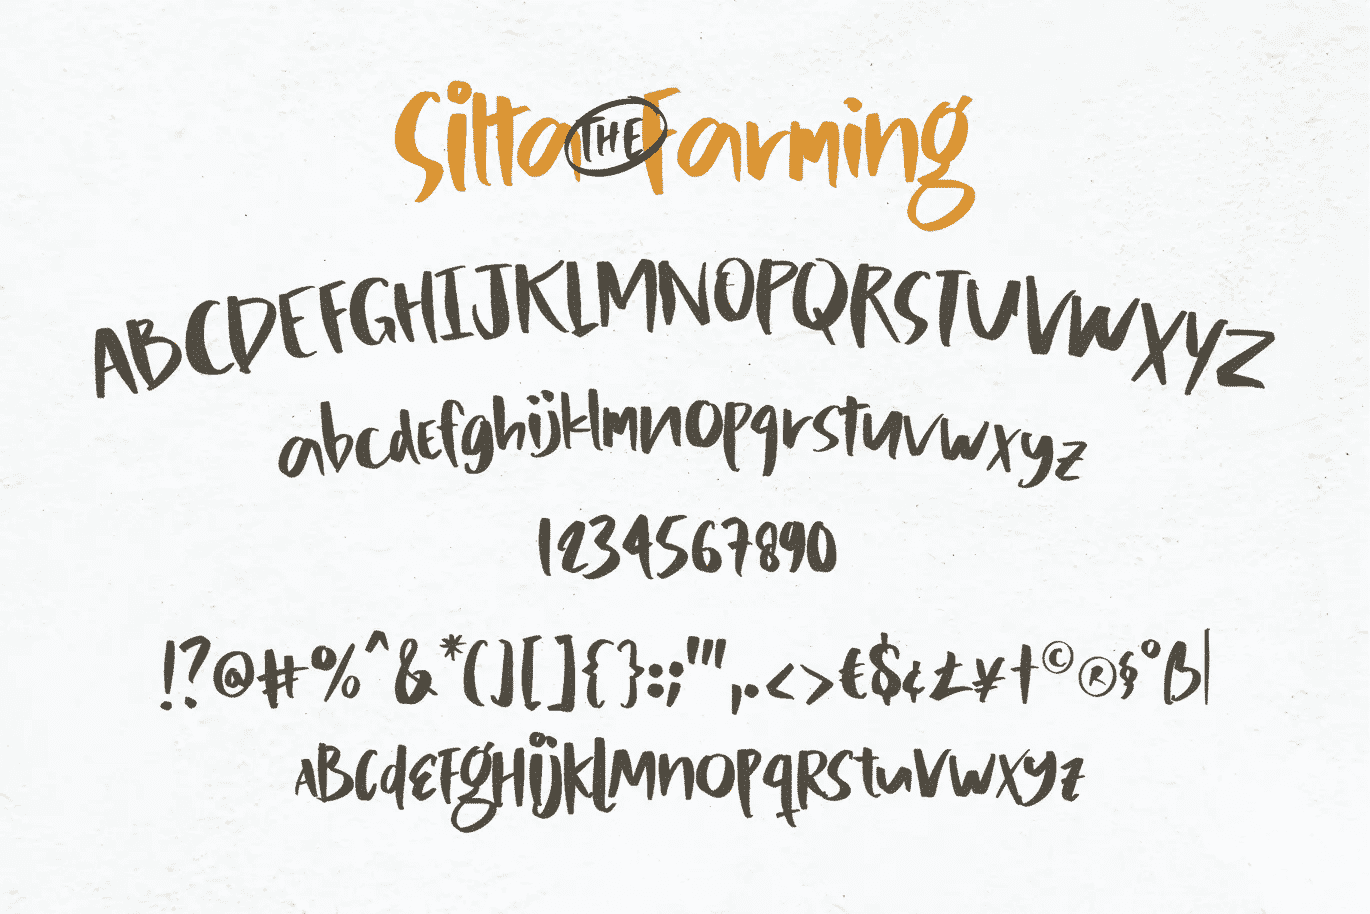 Silta THE Farming
ABCDEFGHIJKLMNOPQRSTUVWXYZ
abcdefghijklmnopqrstuvwxyz
1234567890
!?@#%^&*()[]{}:;"',.<>€$¢£¥†©®§°ß|
ABCdεFghijklMnopqRStuVwxyz